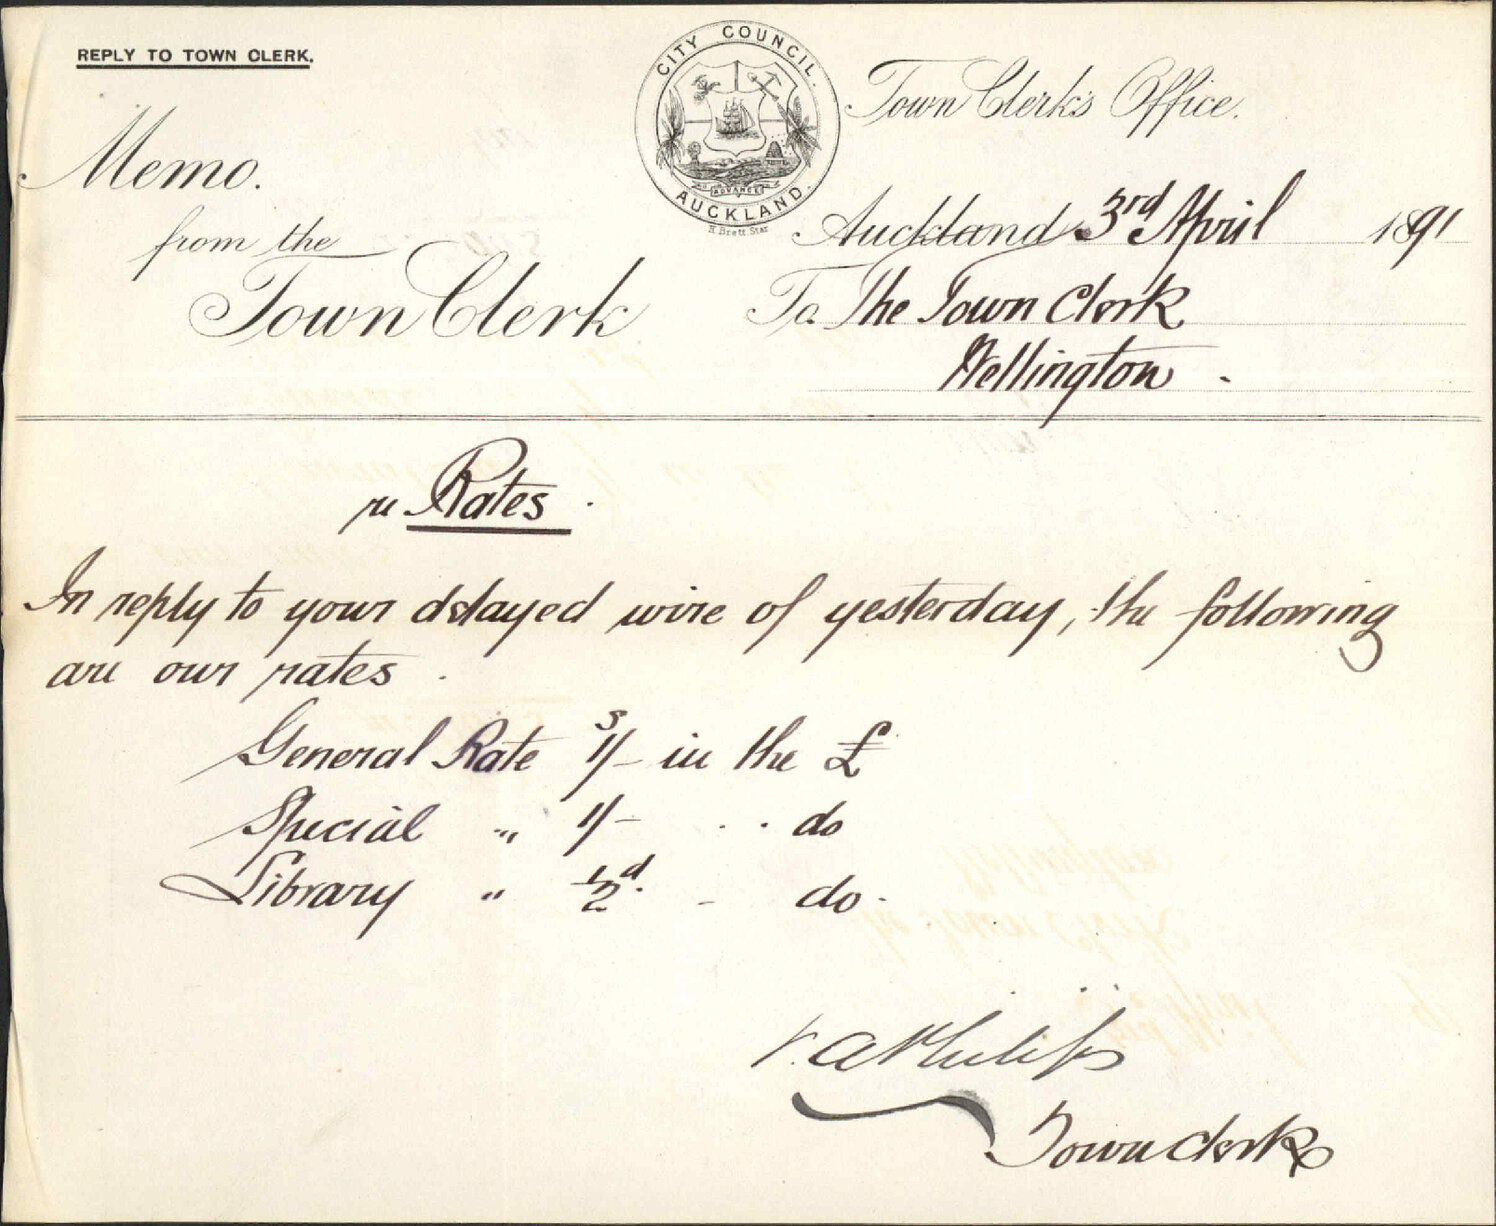 REPLY TO TOWN CLERK.
CITY COUNCIL.
ADVANCE
AUCKLAND.
H Brett. Star
Town Clerk's Office.
Memo.
from the
Town Clerk
Auckland 3rd April 1891
To The Town Clerk
Wellington.
re Rates.
In reply to your delayed wire of yesterday, the following
are our rates.
General Rate 1/- in the £
s
Special " 1/- . . do
Library " 1/2d. - do.
P. A Philips
Town Clerk